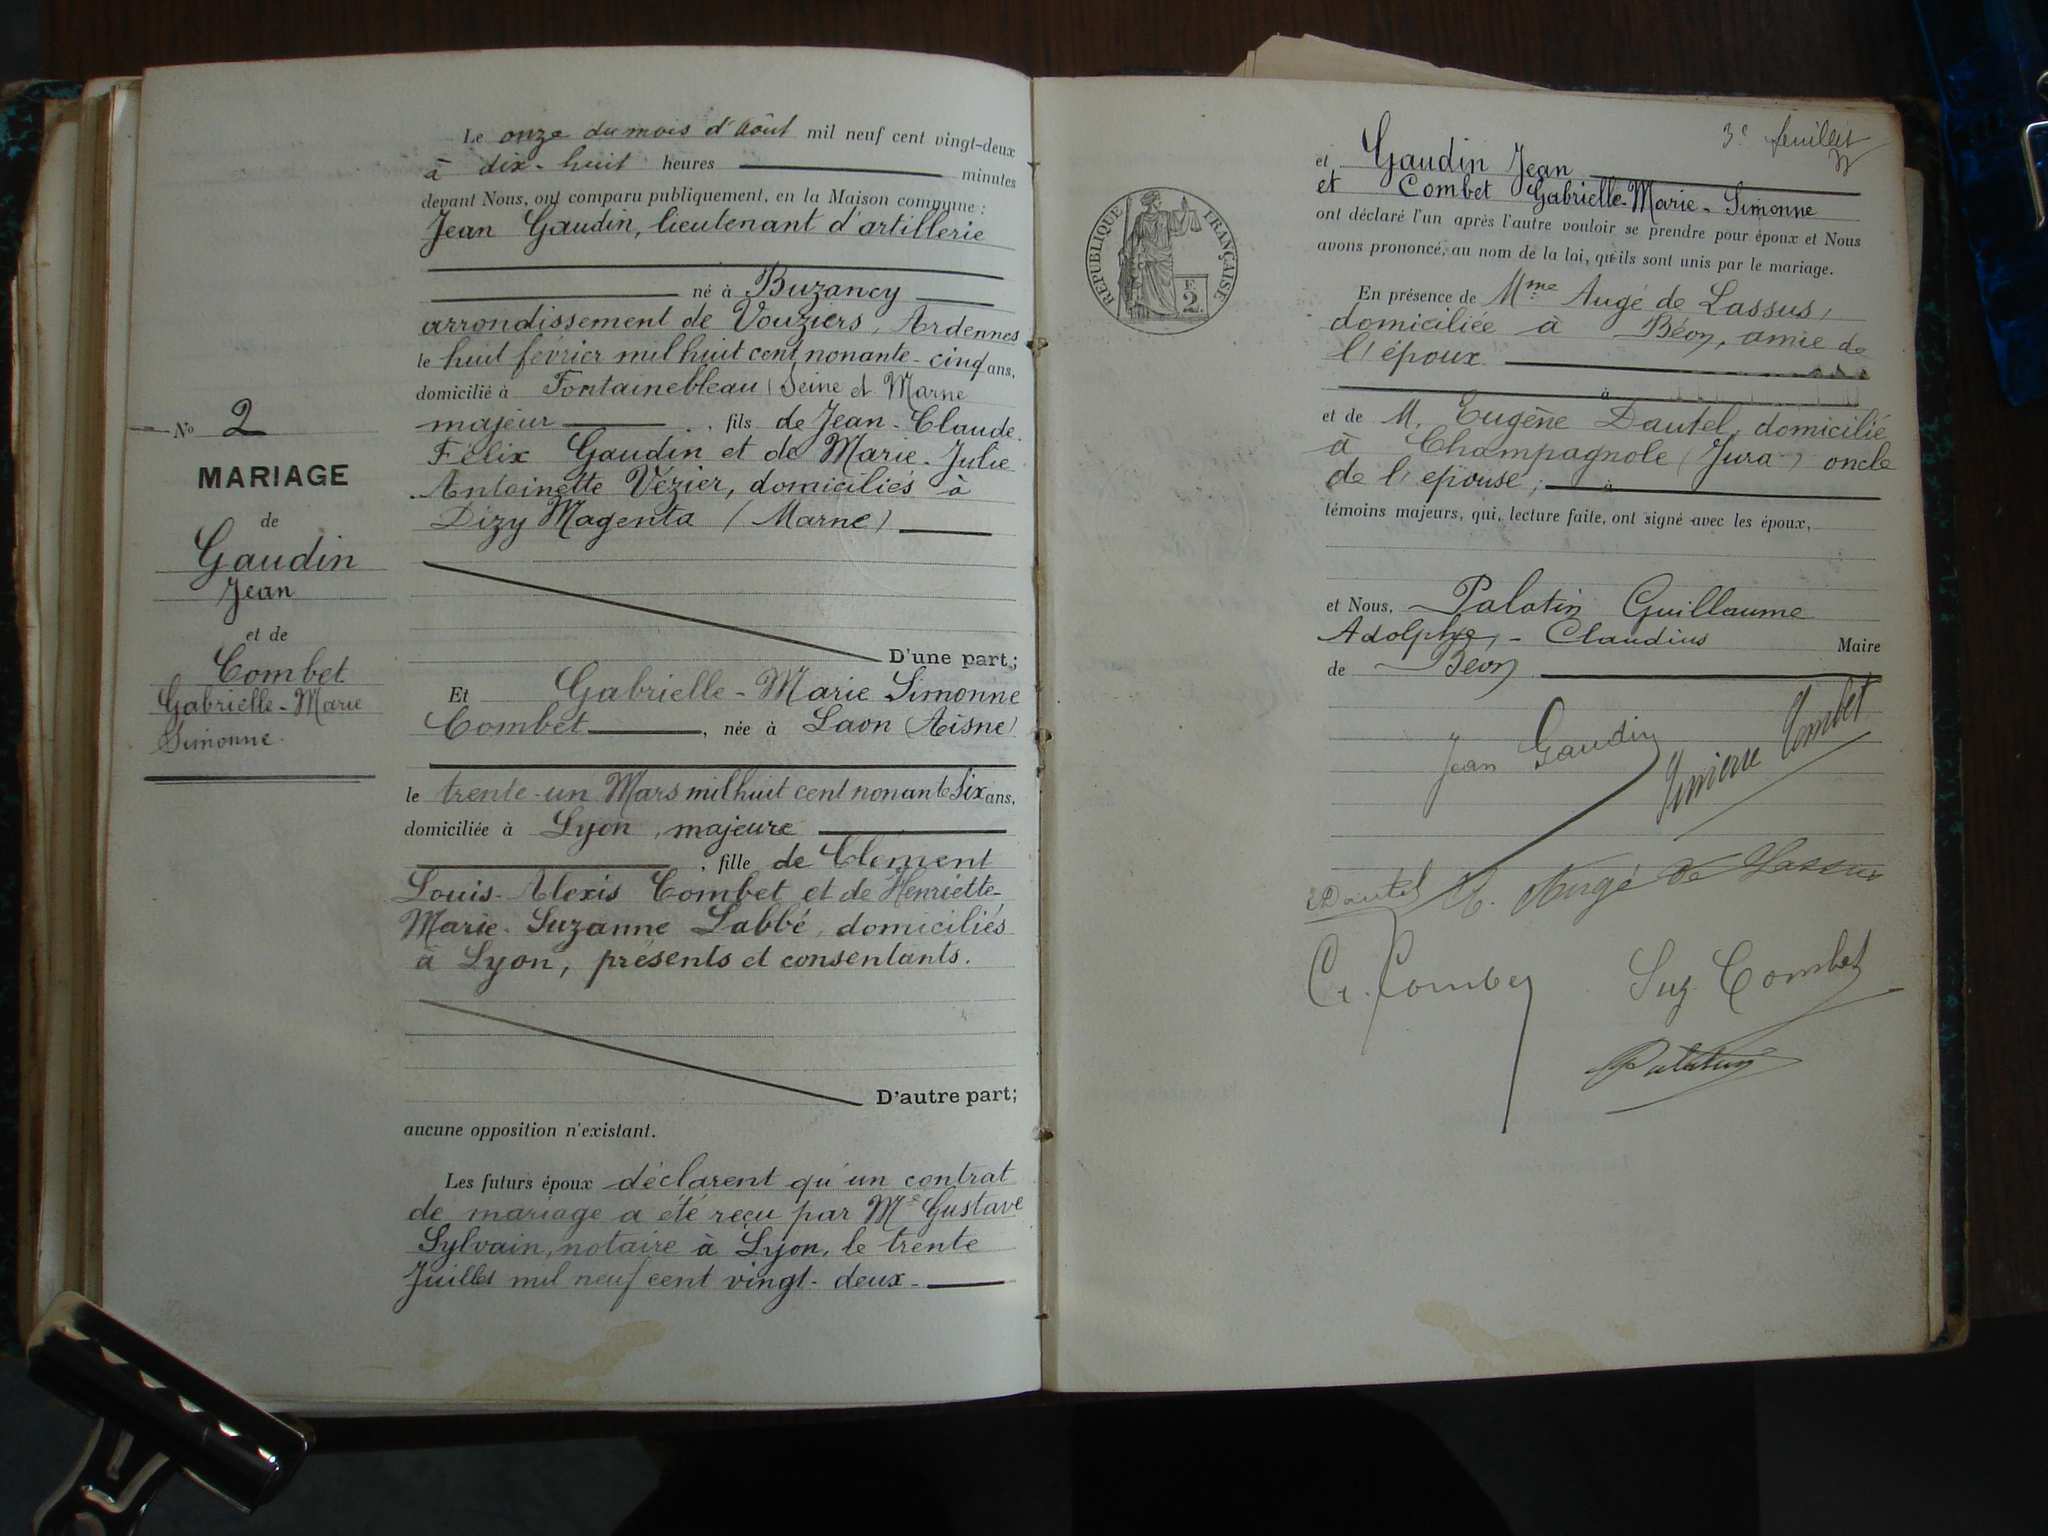 N° 2
MARIAGE
de
Gaudin
Jean
et de
Combet
Gabrielle-Marie
Simonne.
Le onze du mois d'Août mil neuf cent vingt-deux
à dix-huit heures minutes
devant Nous, ont comparu publiquement, en la Maison commune :
Jean Gaudin, lieutenant d'artillerie
né à Buzancy
arrondissement de Vouziers, Ardennes
le huit février mil huit cent nonante-cinq ans,
domicilié à Fontainebleau (Seine et Marne
majeur, fils de Jean-Claude
Félix Gaudin et de Marie-Julie
Antoinette Vézier, domiciliés à
Dizy Magenta (Marne)
D'une part;
Et Gabrielle-Marie Simonne
Combet, née à Laon (Aisne)
le trente-un Mars mil huit cent nonante six ans,
domiciliée à Lyon, majeure
, fille de Clément
Louis-Alexis Combet et de Henriette-
Marie-Suzanne Labbé, domiciliés
à Lyon, présents et consentants.
D'autre part;
aucune opposition n'existant.
Les futurs époux déclarent qu'un contrat
de mariage a été reçu par Me Gustave
Sylvain, notaire à Lyon, le trente
Juillet mil neuf cent vingt-deux-
3e feuillet
RÉPUBLIQUE FRANÇAISE
F
2
et Gaudin Jean
et Combet Gabrielle-Marie-Simonne
ont déclaré l'un après l'autre vouloir se prendre pour époux et Nous
avons prononcé, au nom de la loi, qu'ils sont unis par le mariage.
En présence de Mme Augé de Lassus,
domiciliée à Béon, amie de
l'époux
à
et de M. Eugène Dautel, domicilié
à Champagnole (Jura) oncle
de l'épouse; à
témoins majeurs, qui, lecture faite, ont signé avec les époux,
et Nous, Palatin Guillaume
Adolphe,-Claudius Maire
de Béon
Jean Gaudin
Combet
Dautel
Augé de Lassus
Combet
Suz. Combet
Palatin